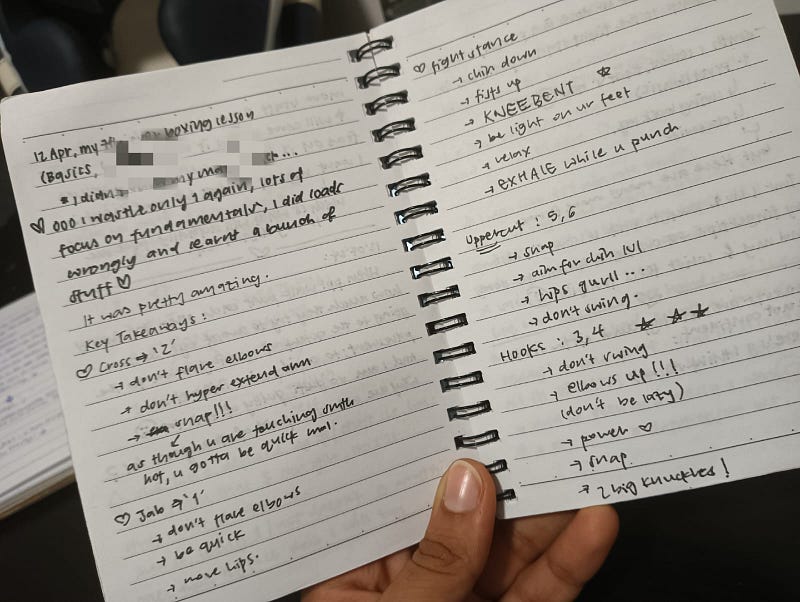 12 Apr, my boxing lesson
(Basics,
* I didn't my
♡ OOO I was the only 1 again, lots of
focus on fundamentals, I did loads
wrongly and learnt a bunch of
stuff ♡
It was pretty amazing.
Key Takeaways:
♡ Cross ⇒ '2'
→ don't flare elbows
→ don't hyper extend arm
→ snap!!!
as though u are touching smth
hot, u gotta be quick
♡ Jab ⇒ '1'
→ don't flare elbows
→ be quick
→ move hips.
♡ fight stance
→ chin down
→ fists up
→ KNEE BENT ☆
→ be light on ur feet
→ relax
→ EXHALE while u punch
Uppercut : 5, 6
→ snap
→ aim for chin lvl
→ hips gurll...
→ don't swing.
HOOKS : 3, 4 ☆ ☆ ☆
→ don't swing
→ elbows up!!!
(don't be lazy)
→ power ♡
→ snap
→ 2 big knuckles!